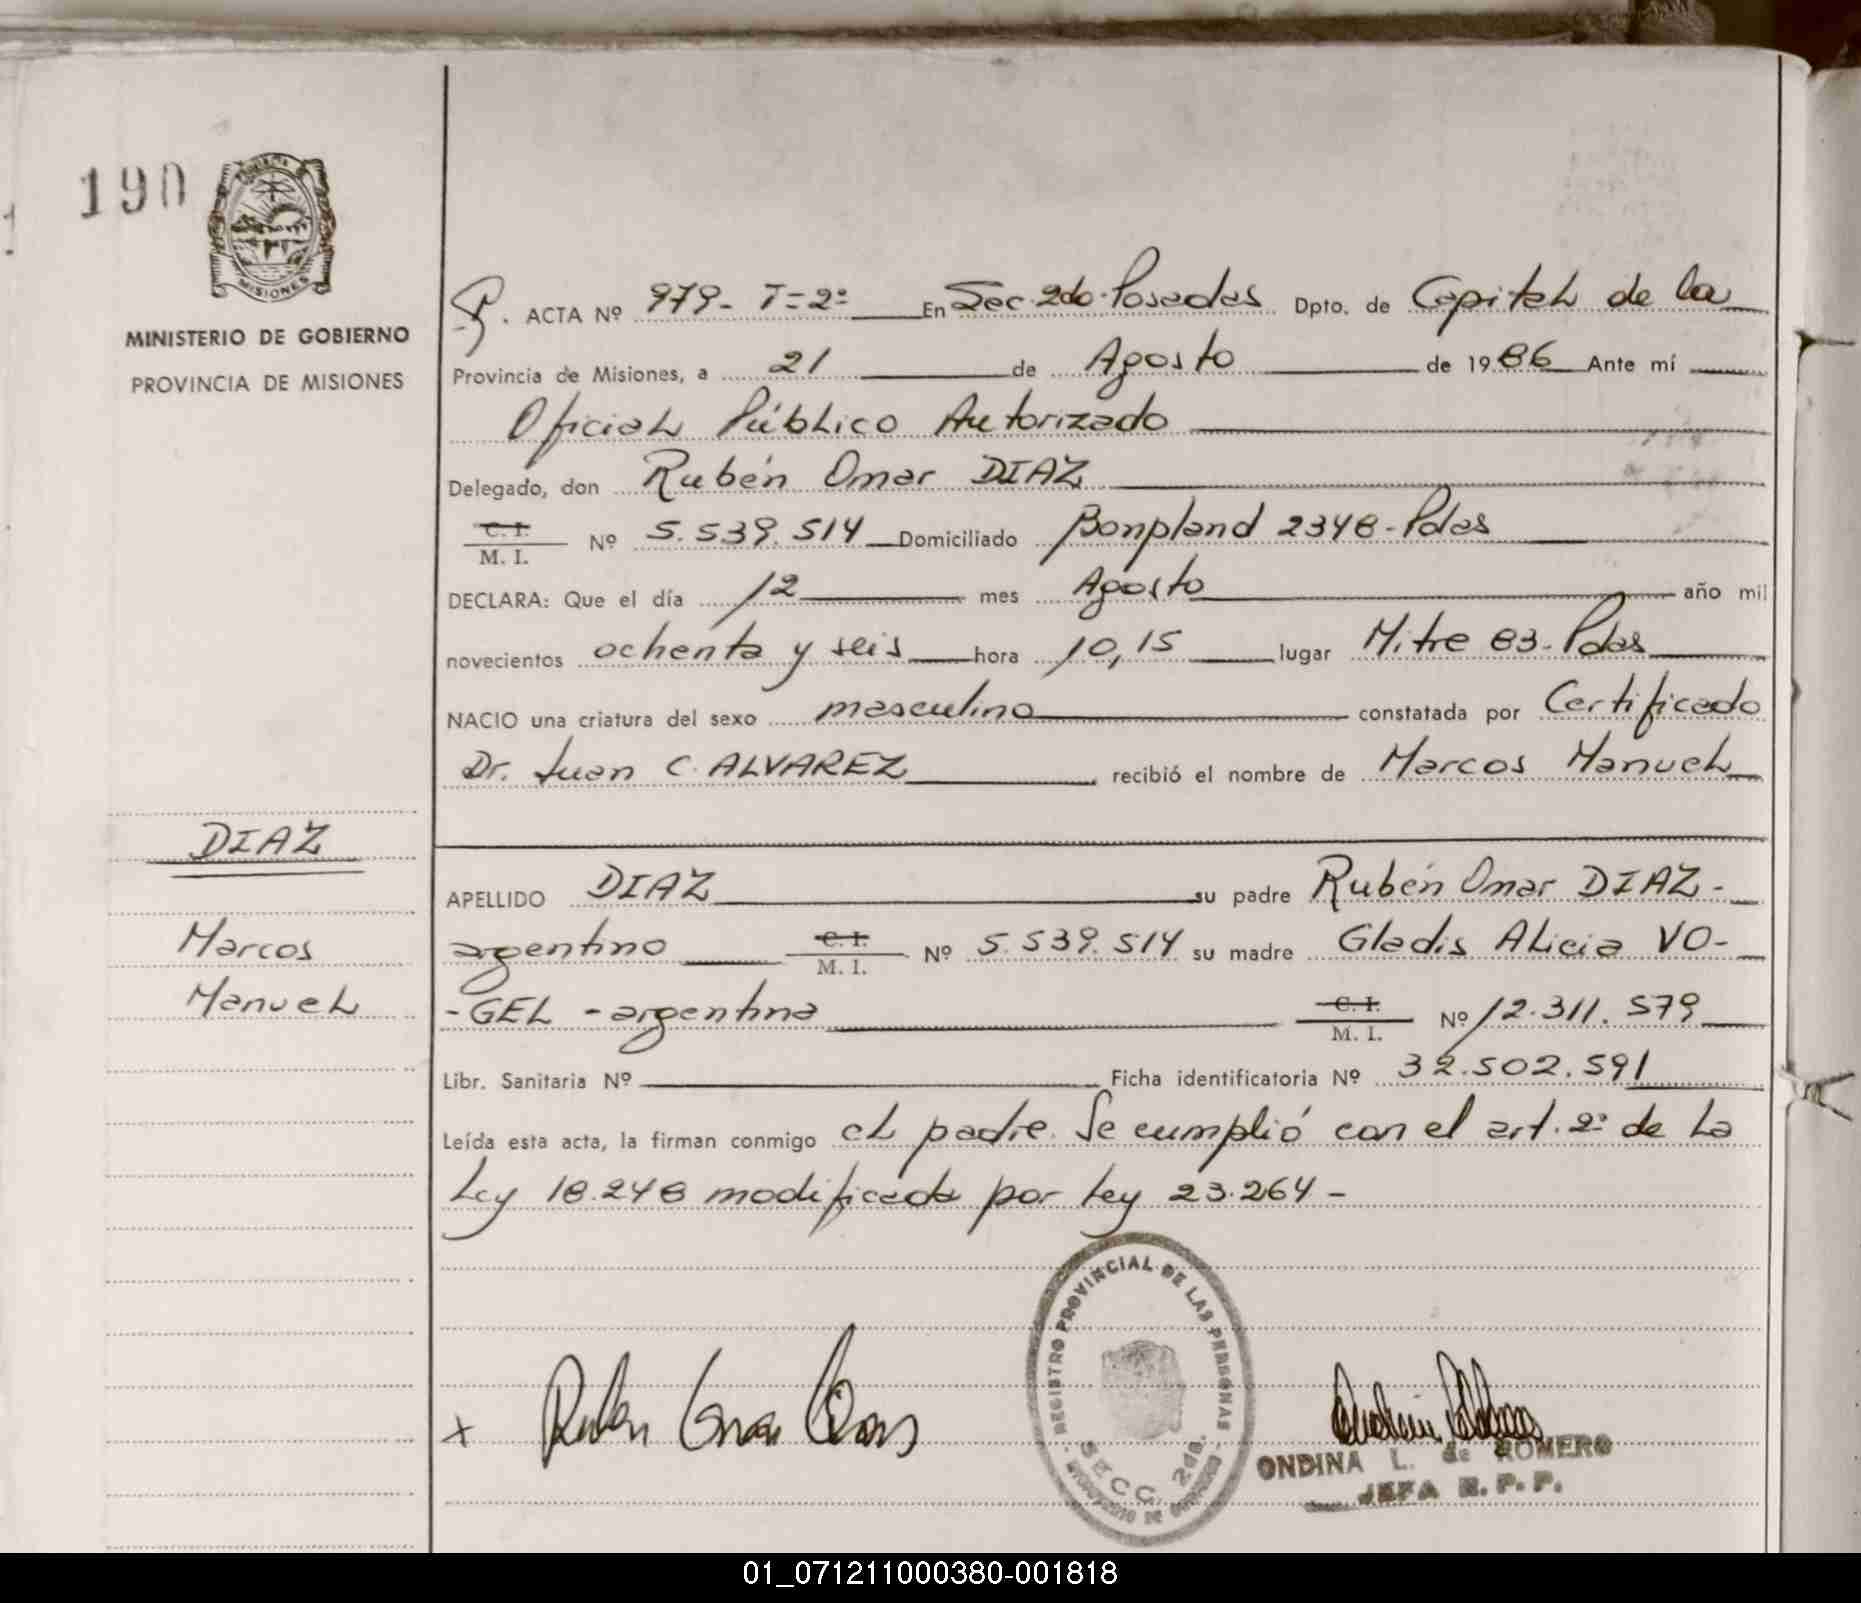 190
MISIONES
MINISTERIO DE GOBIERNO
PROVINCIA DE MISIONES
ACTA Nº 979- T=2º En Sec. 2da. Posadas Dpto. de Capital de la
Provincia de Misiones, a 21 de Agosto de 1986 Ante mí
Oficial Público Autorizado
Delegado, don Rubén Omar DIAZ
C. I.
M. I. Nº 5.539.514 Domiciliado Bonpland 2348-Pdas
DECLARA: Que el día 12 mes Agosto año mil
novecientos ochenta y seis hora 10,15 lugar Mitre 83-Pdas
NACIO una criatura del sexo masculino constatada por Certificado
Dr. Juan C. ALVAREZ recibió el nombre de Marcos Manuel
DIAZ
Marcos
Manuel
APELLIDO DIAZ su padre Rubén Omar DIAZ-
argentino C. I.
M. I. Nº 5.539.514 su madre Gladis Alicia VO-
-GEL -argentina C. I.
M. I. Nº 12.311.579
Libr. Sanitaria Nº Ficha identificatoria Nº 32.502.591
Leída esta acta, la firman conmigo el padre. Se cumplió con el art. 2º de la
Ley 18.248 modificada por Ley 23.264-
x Ruben Omar Diaz
REGISTRO PROVINCIAL DE LAS PERSONAS
SECC. 2da.
ONDINA L. de ROMERO
JEFA R.P.P.
01_071211000380-001818